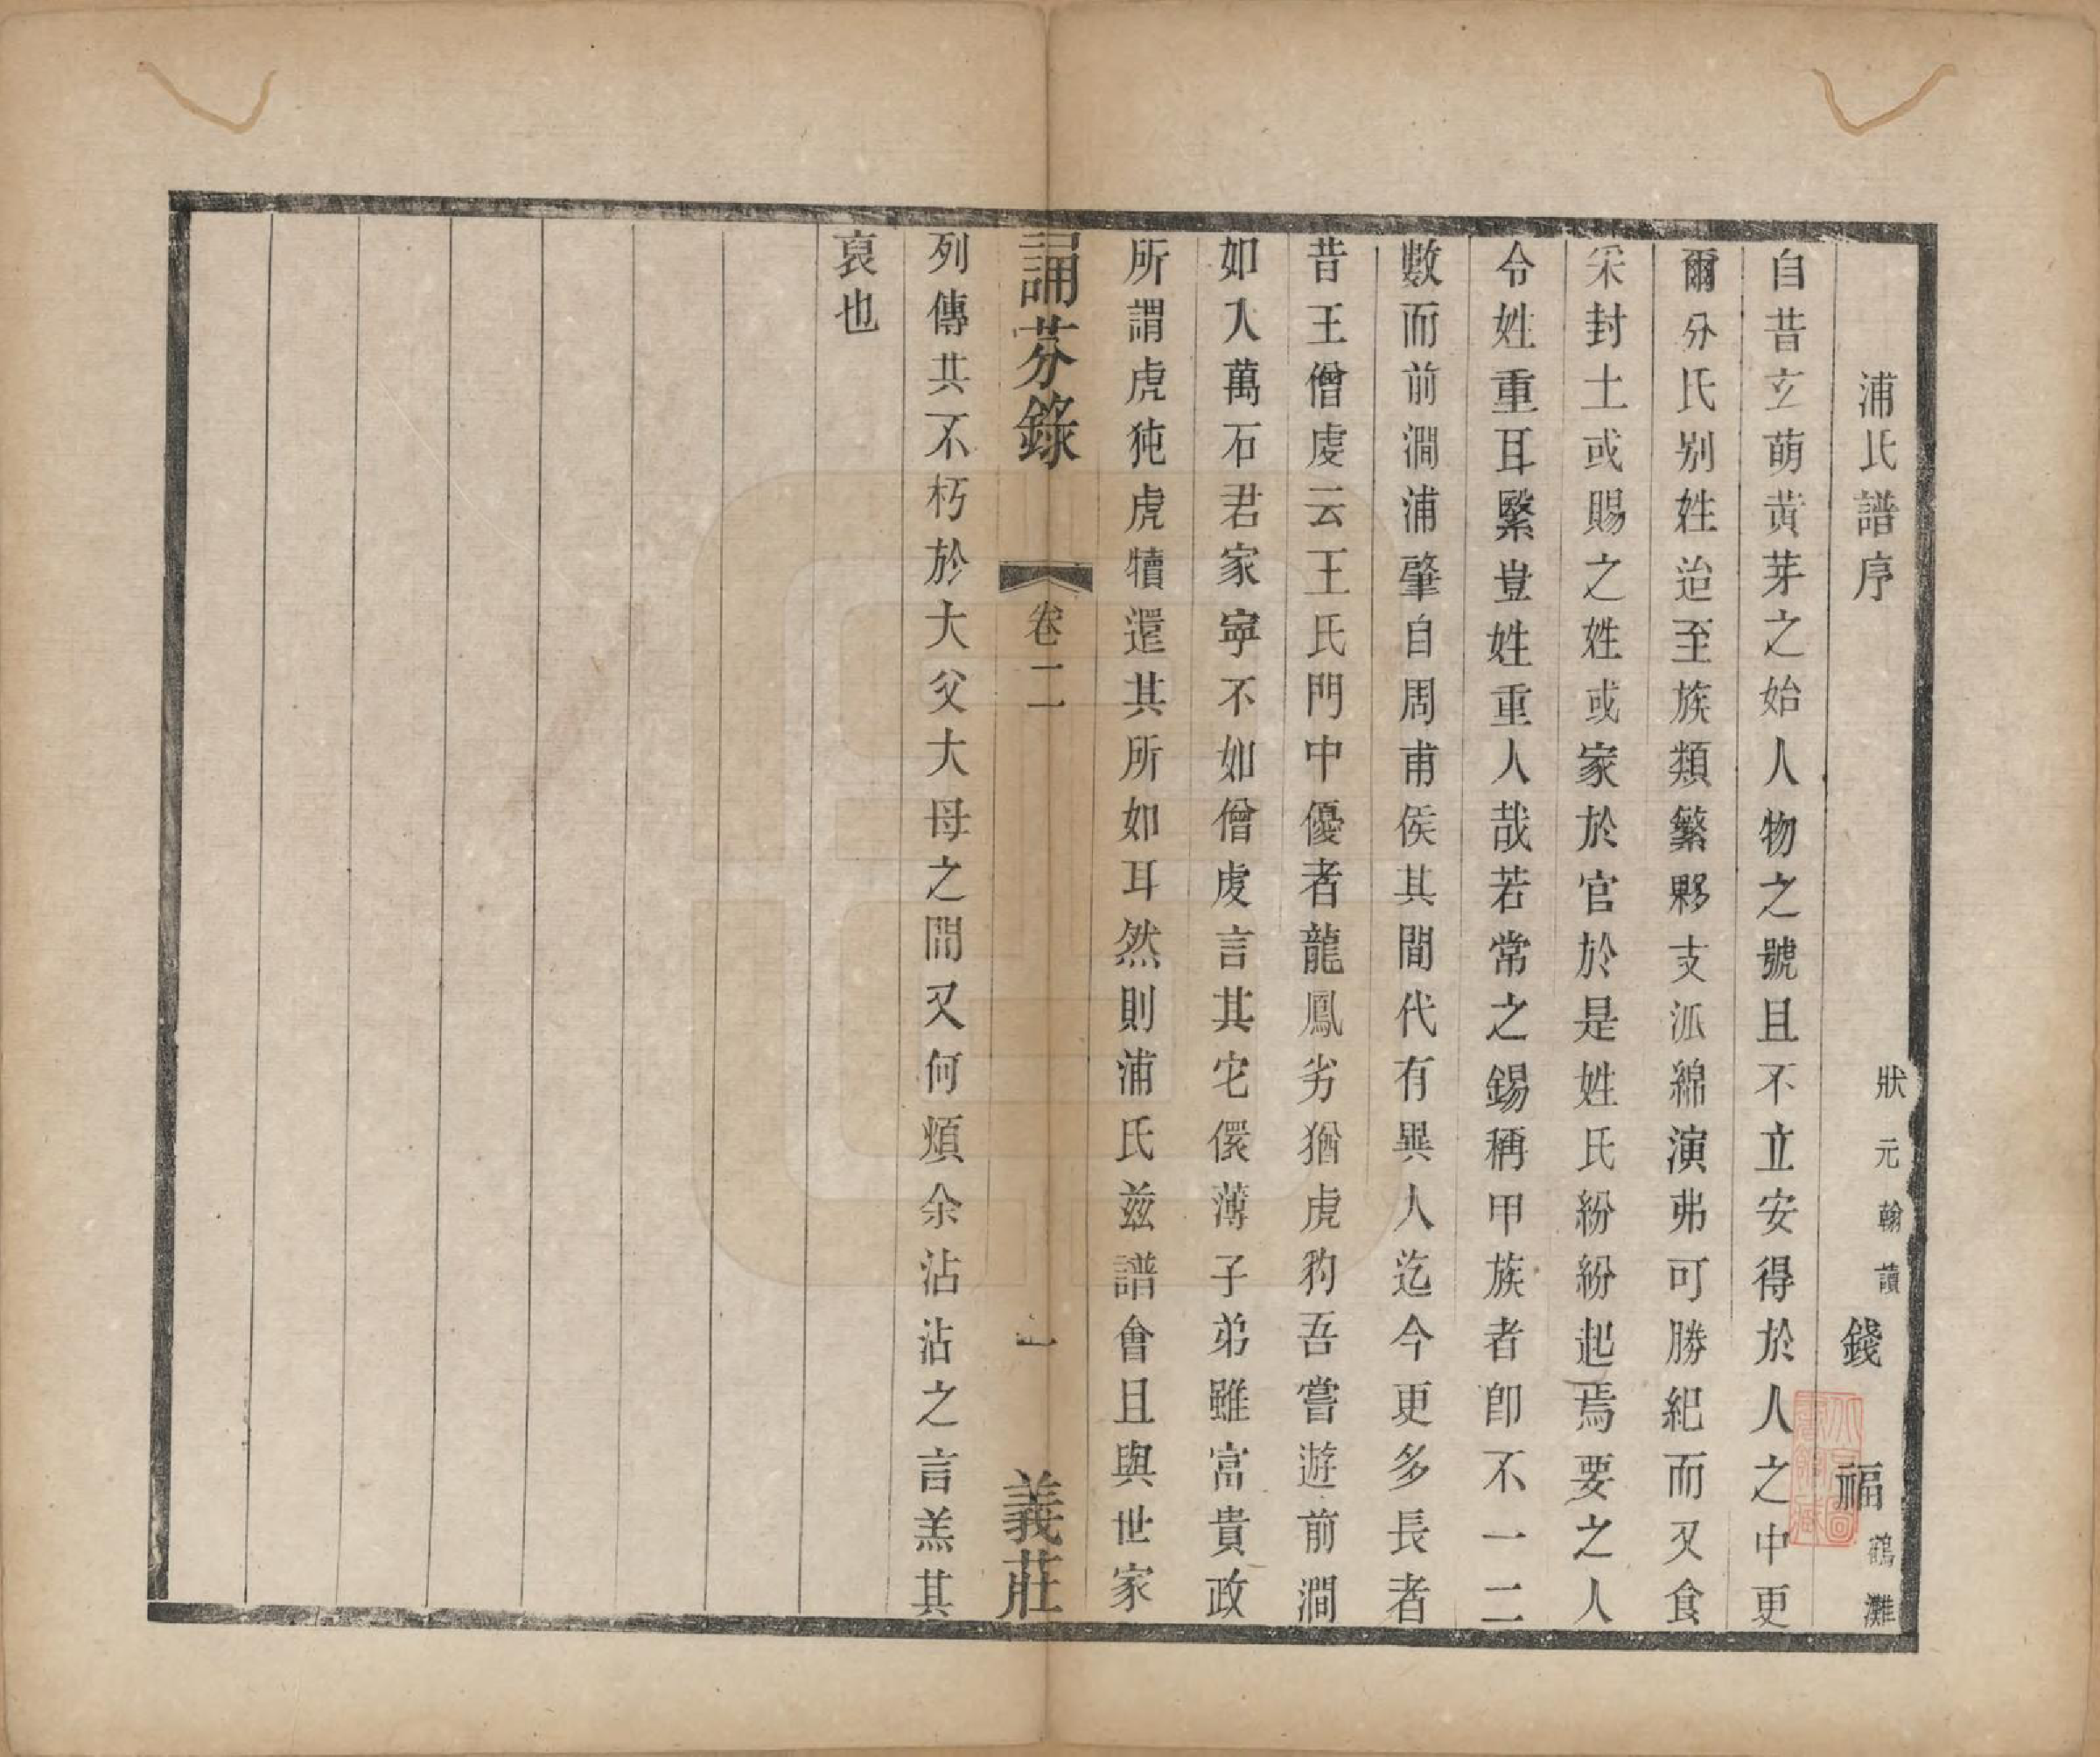 浦氏譜序
狀元翰讀錢福鶴灘
自昔玄萌黃芽之始人物之號且不立安得於人之中更
爾分氏別姓迨至族類繁夥支派綿演弗可勝紀而又食
采封土或賜之姓或家於官於是姓氏紛紛起焉要之人
令姓重耳緊豈姓重人哉若常之錫稱甲族者卽不一二
數而前澗浦肇自周甫侯其間代有異人迄今更多長者
昔王僧虔云王氏門中優者龍鳳劣猶虎豹吾嘗遊前澗
如入萬石君家寧不如僧虔言其宅儇薄子弟雖富貴政
所謂虎㹠虎犢還其所如耳然則浦氏兹譜會且與世家
誦芬錄
卷二
一
義莊
列傳共不朽於大父大母之間又何煩余沾沾之言羔其
裒也